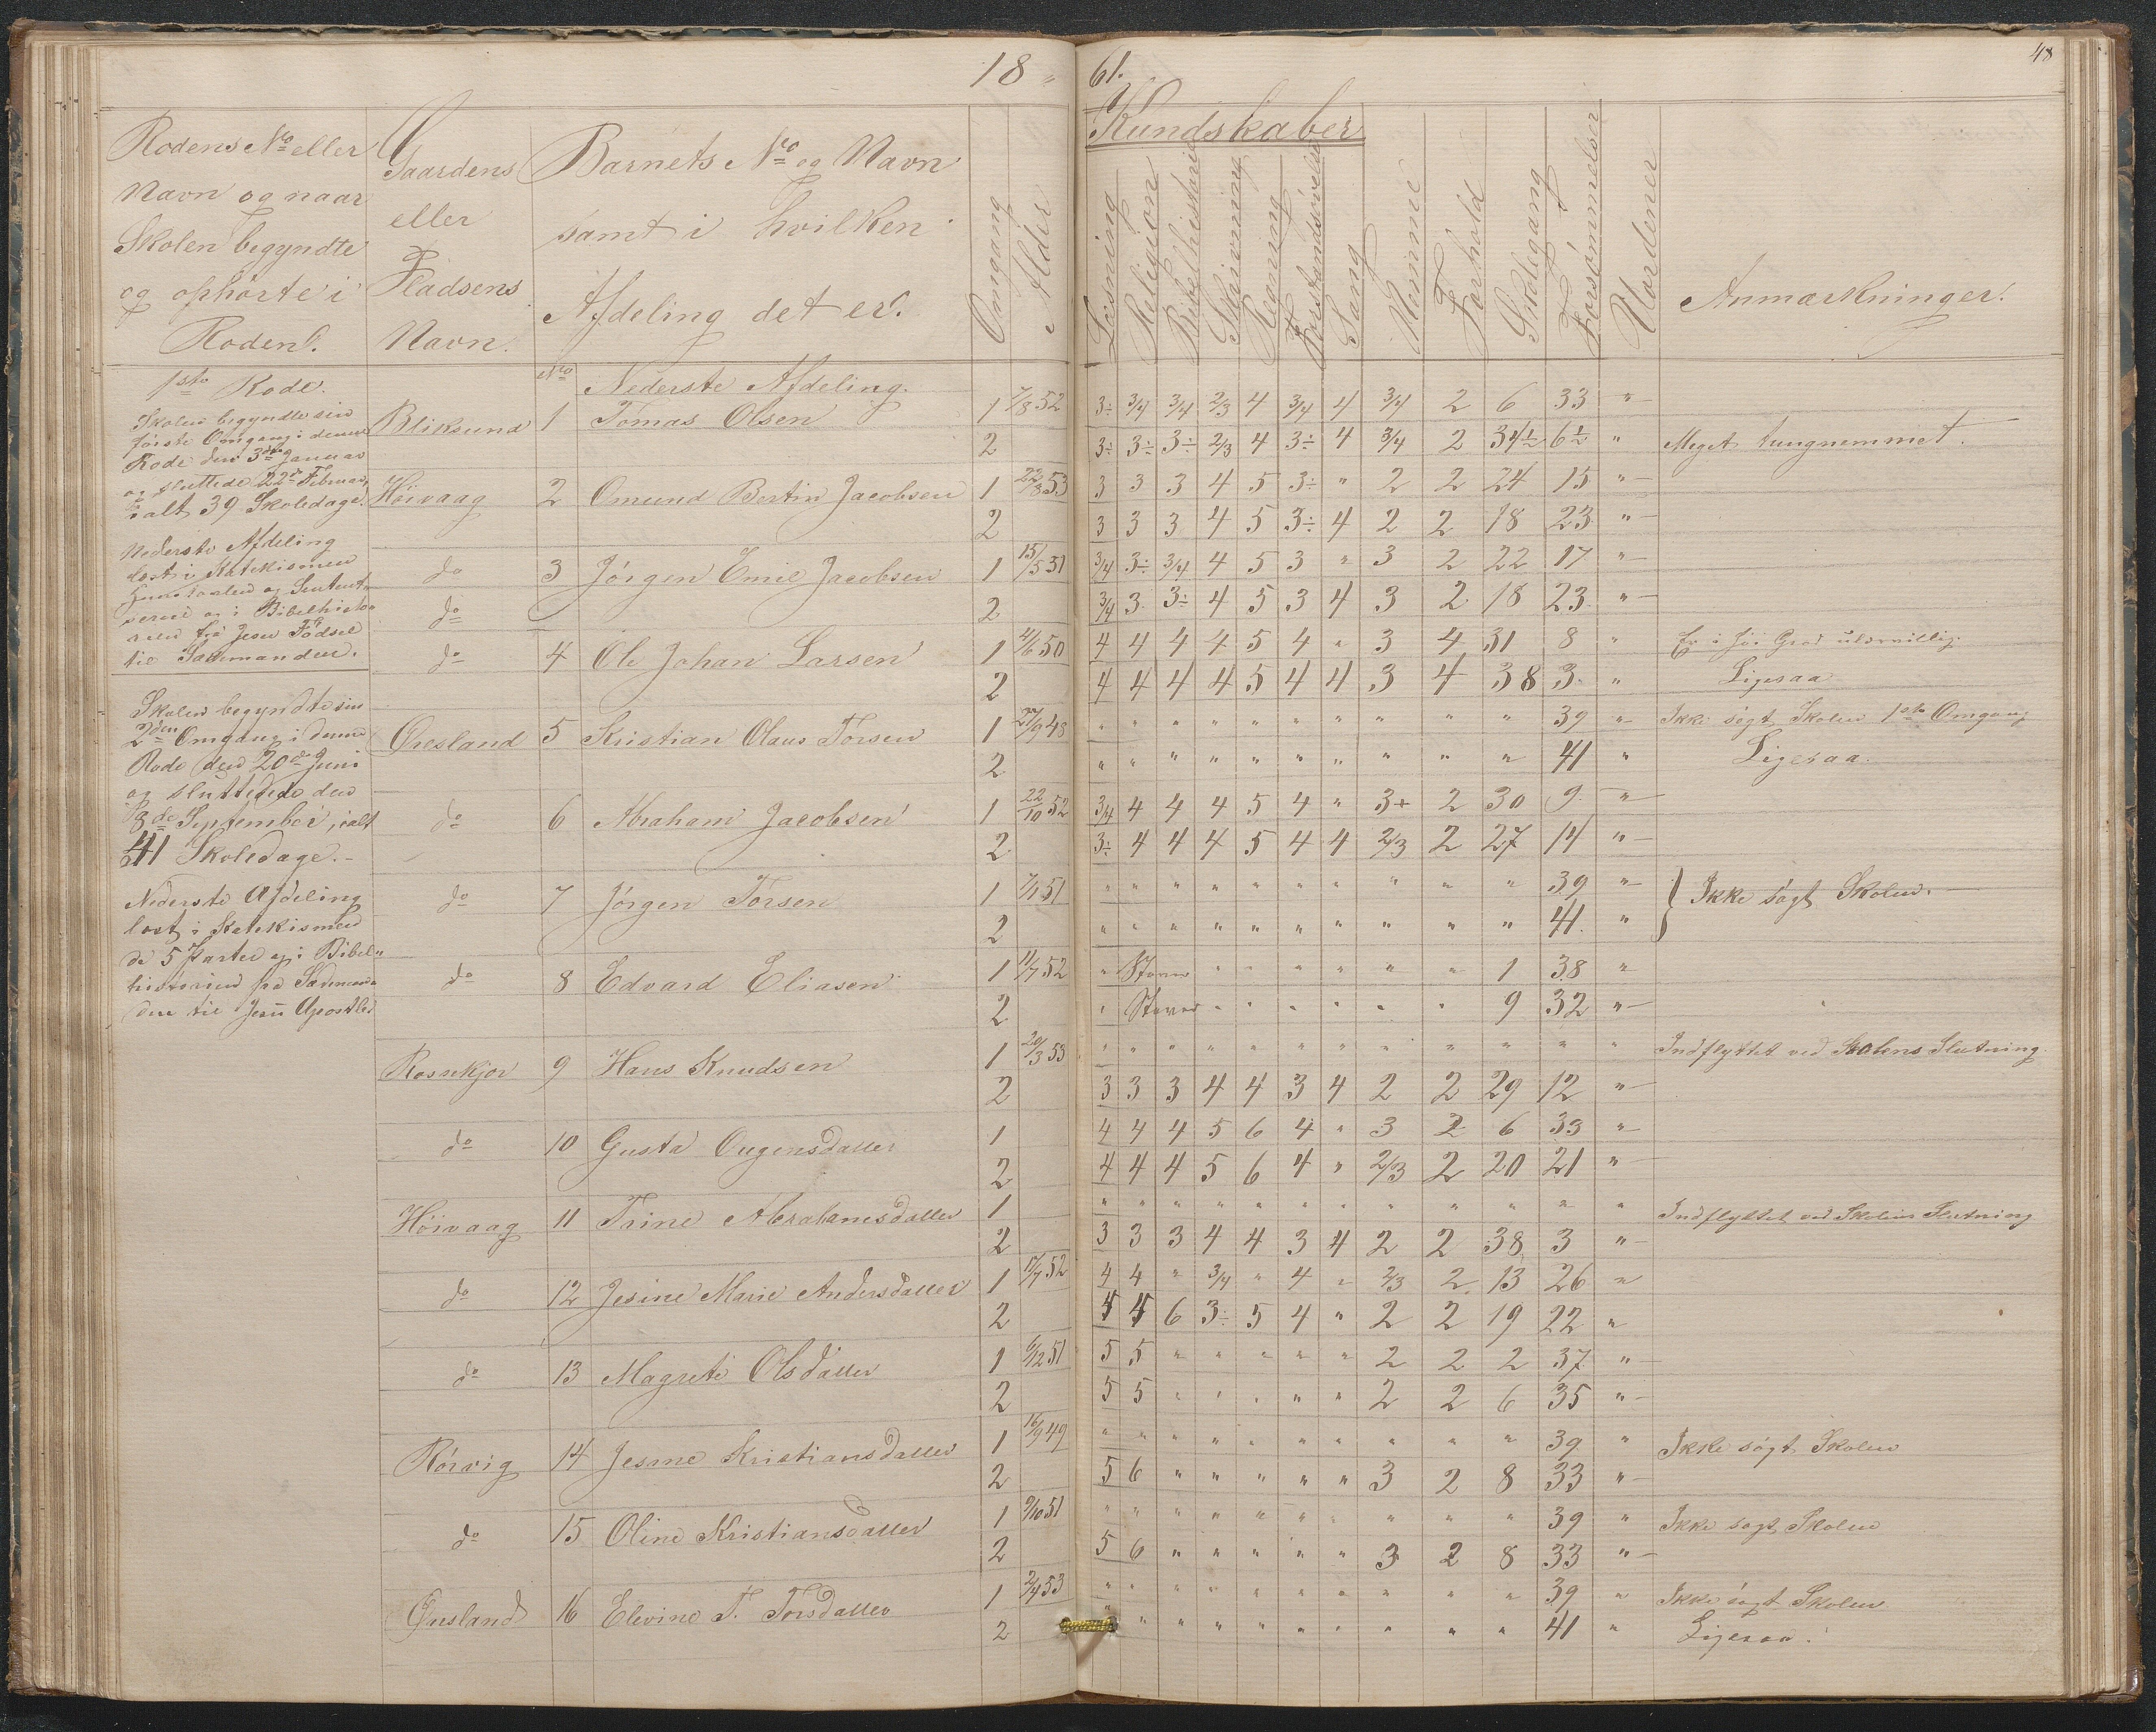 18 " 61.
48
Rodens No eller
Navn og naar
Skolen begyndte
og ophørte i
Roden.
Gaardens
eller
Pladsens
Navn.
Barnets No og Navn
samt i hvilken
Afdeling det er.
Omgang
Alder
Kundskaber
Læsning
Religion
Bibelhistorie
Skrivning
Regning
Forstandsøvelse
Sang
Nemme
Forhold
Skolegang
Forsømmelser
Uordener
Anmærkninger.
1ste Rode.
Skolen begyndte sin
første Omgang i denne
Rode den 3die Januar
og sluttede 22de Februar,
ialt 39 Skoledage.
Nederste Afdeling
læst i Katekismen
og i Bibelhisto-
rien fra Jesu Fødsel
til Sædemanden.
Skolen begyndte sin
2den Omgang i denne
Rode den 20de Juni
og sluttede den
8de September, ialt
41 Skoledage.
Nederste Afdeling
læst i Katekismen
de 5 Parter og i Bibel-
historien fra Sædeman-
den til Jesu Apostler
No Nederste Afdeling.
Bliksund 1 Tomas Olsen 1 7/8 52 3÷ 3/4 3/4 2/3 4 3/4 4 3/4 2 6 33 "
2 3÷ 3÷ 3÷ 2/3 4 3÷ 4 3/4 2 34½ 6½ " Meget tungnemmet.
Høivaag 2 Omund Bertin Jacobsen 1 22/8 53 3 3 3 4 5 3÷ " 2 2 24 15 "
2 3 3 3 4 5 3÷ 4 2 2 18 23 "
do 3 Jørgen Emil Jacobsen 1 15/5 51 3/4 3÷ 3/4 4 5 3 " 3 2 22 17 "
do 2 3/4 3 3÷ 4 5 3 4 3 2 18 23 "
do 4 Ole Johan Larsen 1 4/6 50 4 4 4 4 5 4 " 3 4 31 8 " Er i høi Grad ulærvillig.
2 4 4 4 4 5 4 4 3 4 38 3 " Ligesaa
Øresland 5 Kristian Olaus Torsen 1 27/9 48 " " " " " " " " " " 39 " Ikke søgt Skolen 1ste Omgang
2 " " " " " " " " " " 41 " Ligesaa.
do 6 Abraham Jacobsen 1 22/10 52 3/4 4 4 4 5 4 " 3+ 2 30 9 "
2 3÷ 4 4 4 5 4 4 2/3 2 27 14 "
do 7 Jørgen Torsen 1 7/1 51 " " " " " " " " " " 39 " } Ikke søgt Skolen.
2 " " " " " " " " " " 41 "
do 8 Edvard Eliasen 1 11/7 52 " Staver " " " " " " " 1 38 "
2 " Staver " " " " " " 9 32 "
Rosnekjær 9 Hans Knudsen 1 20/3 53 " " " " " " " " " " " " Indflyttet ved Skolens Slutning
2 3 3 3 4 4 3 4 2 2 29 12 "
do 10 Gusta Ougensdatter 1 4 4 4 5 6 4 " 3 2 6 33 "
2 4 4 4 5 6 4 " 2/3 2 20 21 "
Høivaag 11 Trine Abrahamsdatter 1 " " " " " " " " " " " " Indflyttet ved Skolens Slutning
2 3 3 3 4 4 3 4 2 2 38 3 "
do 12 Jesine Marie Andersdatter 1 17/7 52 4 4 " 3/4 " 4 " 2/3 2 13 26 "
2 4 4 6 3÷ 5 4 " 2 2 19 22 "
do 13 Magrete Olsdatter 1 6/12 51 5 5 " " " " " 2 2 2 37 "
2 5 5 " " " " " 2 2 6 35 "
Rørvig 14 Jesine Kristiansdatter 1 16/9 49 " " " " " " " " " " 39 " Ikke søgt Skolen
2 5 6 " " " " " 3 2 8 33 "
do 15 Oline Kristiansdatter 1 9/10 51 " " " " " " " " " " 39 " Ikke søgt Skolen
2 5 6 " " " " " 3 2 8 33 "
Øusland 16 Elevine T. Torsdatter 1 2/4 53 " " " " " " " " " " 39 " Ikke søgt Skolen
2 " " " " " " " " " " 41 " Ligesaa.